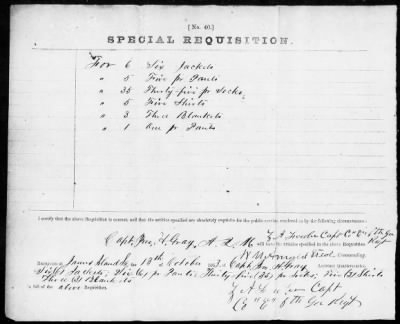 [No. 40.]
SPECIAL REQUISITION.
For 6 Six Jackets
" 5 Five pr Pants
" 35 Thirty five pr Socks
" 5 Five Shirts
" 3 Three Blankets
" 1 One pr Pants
I certify that the above Requisition is correct; and that the articles specified are absolutely requisite for the public service, rendered so by the following circumstances:
Capt Co "E" 6th Geo
Regt
Capt. Jno. H. Gray, A. Q. M. will issue the articles specified in the above Requisition.
Commanding.
Received at James Island So 13th October 3, of Capt. Jno. H. Gray Assistant Quartermaster,
Six (6) Jackets; Six (6) pr Pants; Thirty five (35) pr Socks; Five (5) Shirts
Three (3) Blankets
in full of the above Requisition.
Capt
Co "E" 6th Geo Regt